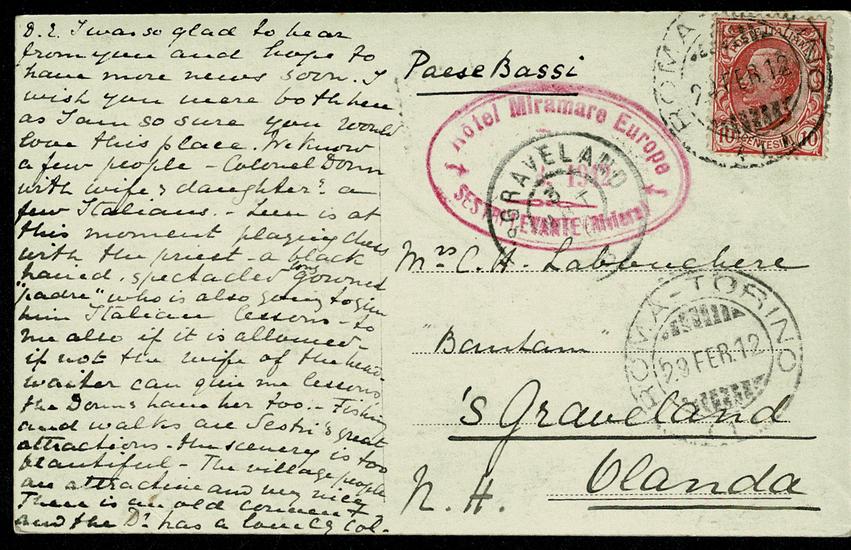 D. E. I was so glad to hear
from you and hope to
have more news soon. I
wish you were both here
as I am so sure you would
love this place. We know
a few people - Colonel Dorm
with wife & daughter & a
few Italians. - Leen is at
this moment playing chess
with the priest - a black
haired, spectacled long gowned
"padre" who is also going to give
him Italian lessons - to
me also if it is allowed -
if not the wife of the head-
waiter can give me lessons
the Dorms have her too. - Fishing
and walks are Sestri's great
attractions - the scenery is too
beautiful - The village people
are attractive and very nice
There is an old convent
and the Dr. has a lovely col-
Paese Bassi
Hôtel Miramare Europe
1912
SESTRI LEVANTE (Riviera)
'S GRAVELAND
Mrs C. H. Labouchere
"Bantam"
's Graveland
N. H. Olanda
ROMA-TORINO
29 FER. 12
ROMA-TORINO
29 FER. 12
POSTE ITALIANE
CENTESIMI 10